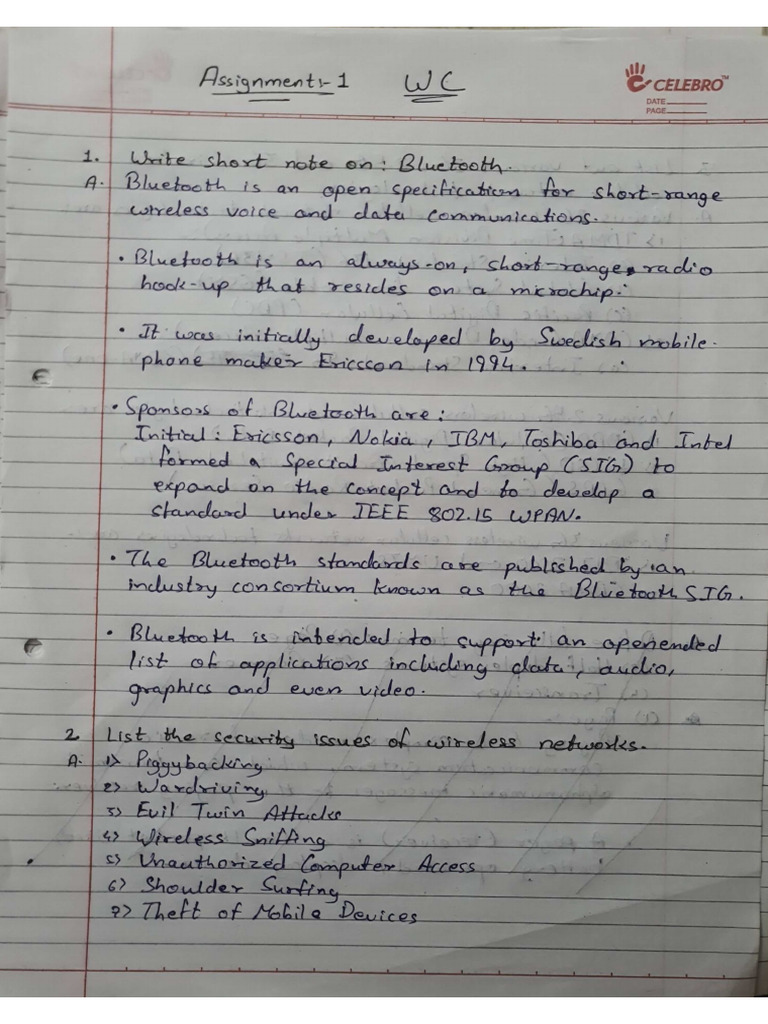 Assignment:-1 WC
CELEBRO™
DATE
PAGE
1. Write short note on: Bluetooth.
A. Bluetooth is an open specification for short-range
wireless voice and data communications.
• Bluetooth is an always-on, short-range radio
hook-up that resides on a microchip.
• It was initially developed by Swedish mobile-
phone maker Ericcson in 1994.
• Sponsors of Bluetooth are:
Initial: Ericsson, Nokia, IBM, Toshiba and Intel
formed a Special Interest Group (SIG) to
expand on the concept and to develop a
standard under IEEE 802.15 WPAN.
• The Bluetooth standards are published by an
industry consortium known as the Bluetooth SIG.
• Bluetooth is intended to support an openended
list of applications including data, audio,
graphics and even video.
2. List the security issues of wireless networks.
A. 1> Piggybacking
2> Wardriving
3> Evil Twin Attacks
4> Wireless Sniffing
5> Unauthorized Computer Access
6> Shoulder Surfing
7> Theft of Mobile Devices